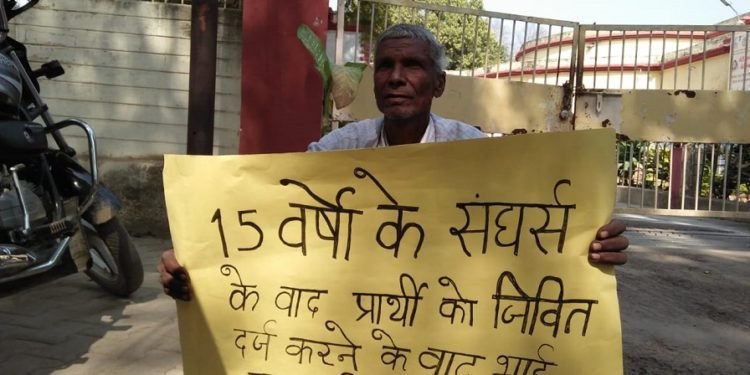 15 वर्षो के संघर्स
के वाद प्रार्थी को जिवित
दर्ज करने के वाद भाई